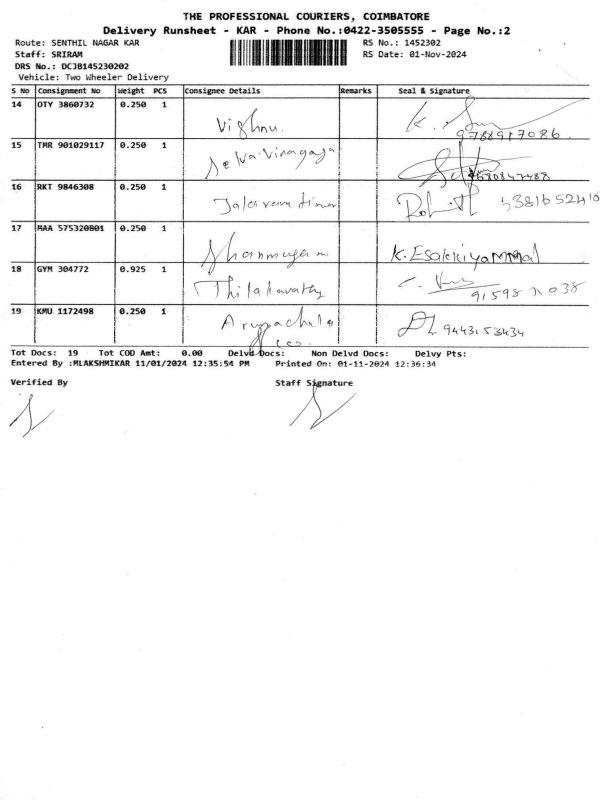 THE PROFESSIONAL COURIERS, COIMBATORE
Delivery Runsheet - KAR - Phone No.:0422-3505555 - Page No.:2
Route: SENTHIL NAGAR KAR RS No.: 1452302
Staff: SRIRAM RS Date: 01-Nov-2024
DRS No.: DCJB145230202
Vehicle: Two Wheeler Delivery
S No Consignment No Weight PCS Consignee Details Remarks Seal & Signature
14 OTY 3860732 0.250 1 Vishnu. K. 9788917086
15 TMR 901029117 0.250 1 Selva.vinagaga
16 RKT 9846308 0.250 1
17 MAA 575320801 0.250 1 Shanmugam K. Esakkiyammal
18 GYM 304772 0.925 1 Thilakavathy
19 KMU 1172498 0.250 1 Arunachala 9443153434
Tot Docs: 19 Tot COD Amt: 0.00 Delvd Docs: Non Delvd Docs: Delvy Pts:
Entered By :MLAKSHMIKAR 11/01/2024 12:35:54 PM Printed On: 01-11-2024 12:36:34
Verified By Staff Signature